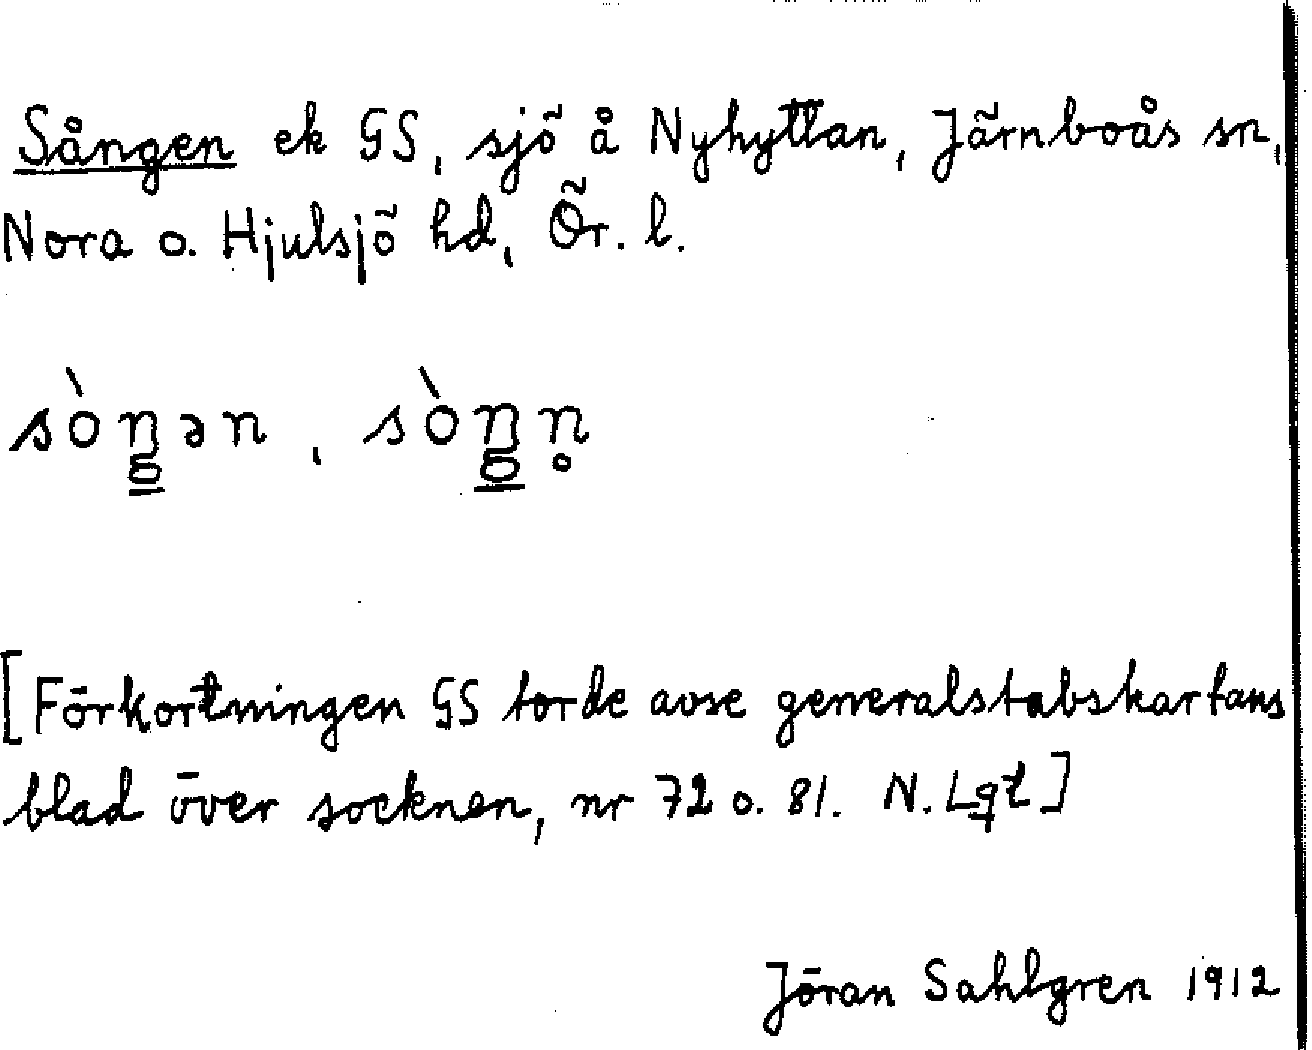 Sången ek GS, sjö å Nyhyttan, Järnboås sn,
Nora o. Hjulsjö hd, Ör. l.
sòŋən, sòŋn̥
[Förkortningen GS torde avse generalstabskartans
blad över socknen, nr 72 o. 81. N. Lgt]
Jöran Sahlgren 1912